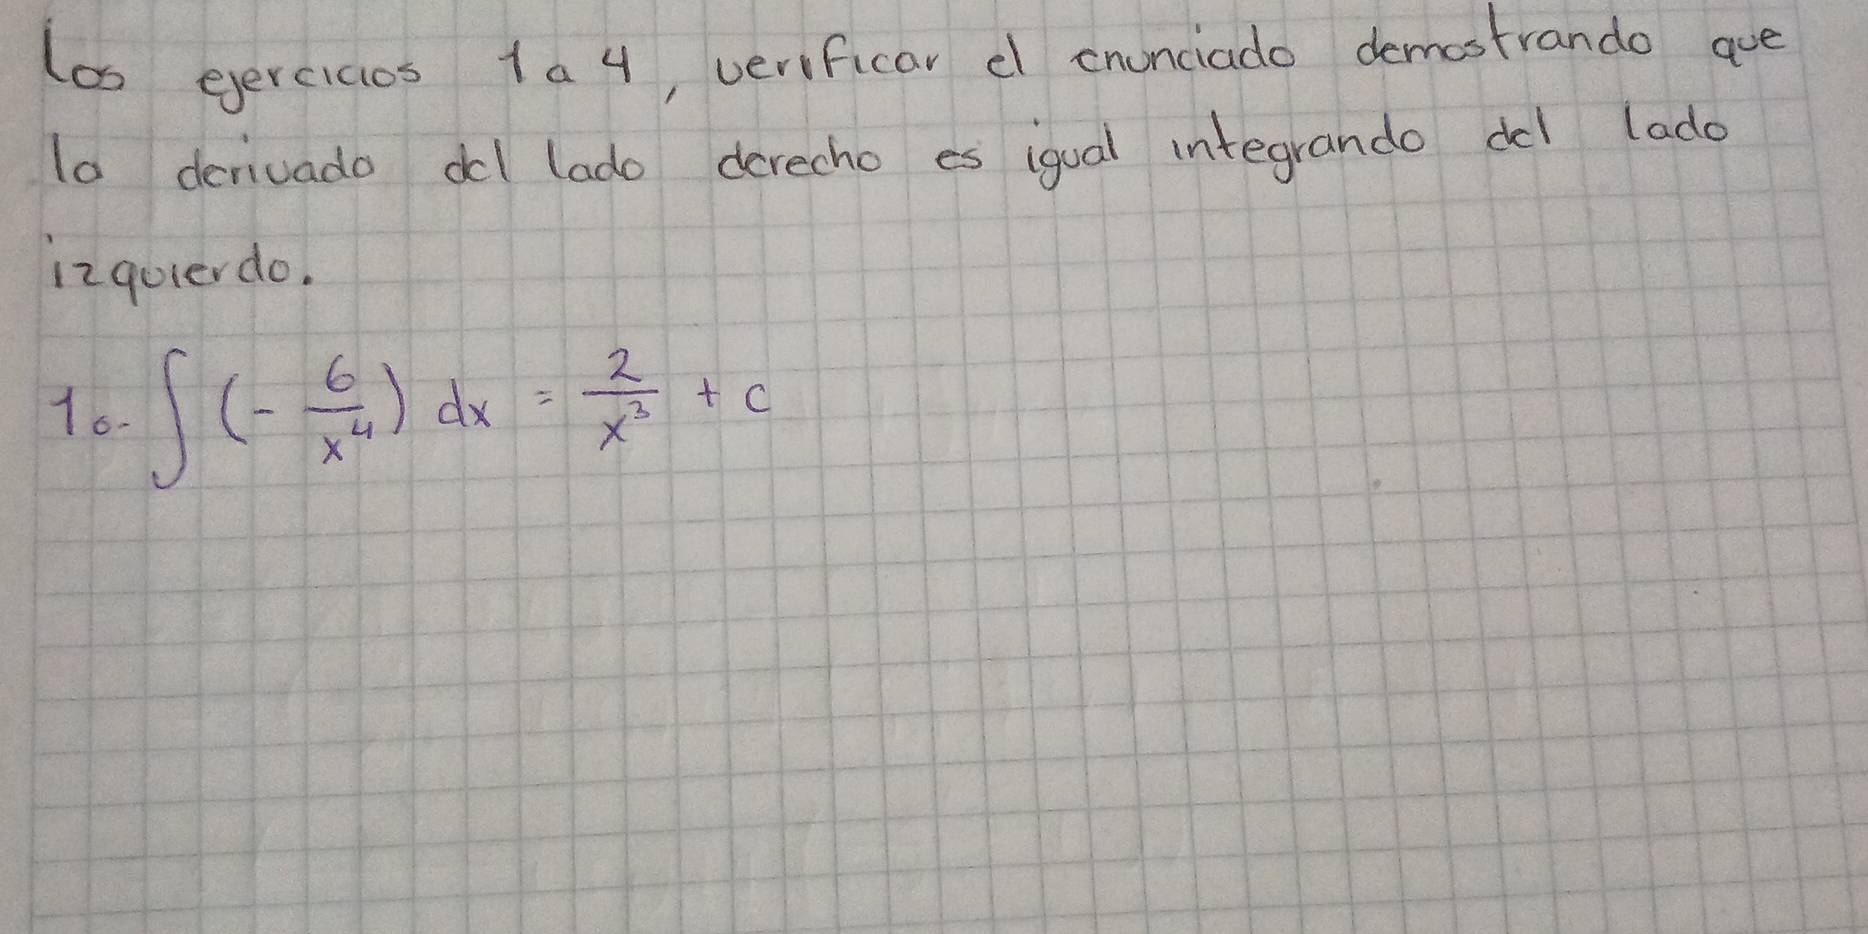 los ejercicios 1 a 4, verificar el enunciado demostrando que
la derivada del lado derecho es igual integrando del lado
izquierdo.
1.- ∫ (- 6/x⁴) dx = 2/x³ + c